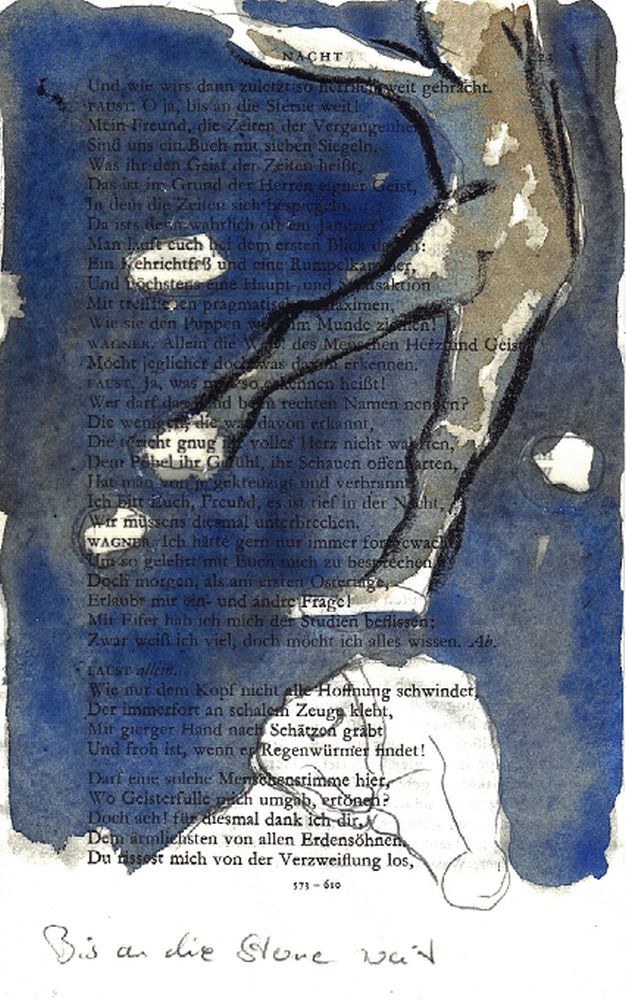 NACHT
Und wie wirs dann zuletzt so herrlich weit gebracht.
FAUST. O ja, bis an die Sterne weit!
Mein Freund, die Zeiten der Vergangenheit
Sind uns ein Buch mit sieben Siegeln.
Was ihr den Geist der Zeiten heißt,
Das ist im Grund der Herren eigner Geist,
In dem die Zeiten sich bespiegeln.
Da ists denn wahrlich oft ein Jammer!
Man läuft euch bei dem ersten Blick davon:
Ein Kehrichtfaß und eine Rumpelkammer,
Und höchstens eine Haupt- und Staatsaktion
Mit trefflichen pragmatischen Maximen,
Wie sie den Puppen wohl im Munde ziemen!
WAGNER. Allein die Welt! des Menschen Herz und Geist
Möcht jeglicher doch was davon erkennen.
FAUST. Ja, was man so erkennen heißt!
Wer darf das Kind beim rechten Namen nennen?
Die wenigen, die was davon erkannt,
Die töricht gnug ihr volles Herz nicht wahrten,
Dem Pöbel ihr Gefühl, ihr Schauen offenbarten,
Hat man von je gekreuzigt und verbrannt.
Ich bitt Euch, Freund, es ist tief in der Nacht,
Wir müssens diesmal unterbrechen.
WAGNER. Ich hätte gern nur immer fortgewacht,
Um so gelehrt mit Euch mich zu besprechen.
Doch morgen, als am ersten Ostertage,
Erlaubt mir ein- und andre Frage!
Mit Eifer hab ich mich der Studien beflissen;
Zwar weiß ich viel, doch möcht ich alles wissen. Ab.
FAUST allein.
Wie nur dem Kopf nicht alle Hoffnung schwindet,
Der immerfort an schalem Zeuge klebt,
Mit gierger Hand nach Schätzen gräbt
Und froh ist, wenn er Regenwürmer findet!
Darf eine solche Menschenstimme hier,
Wo Geisterfülle mich umgab, ertönen?
Doch ach! für diesmal dank ich dir,
Dem ärmlichsten von allen Erdensöhnen.
Du rissest mich von der Verzweiflung los,
573 – 610
Bis an die Sterne weit